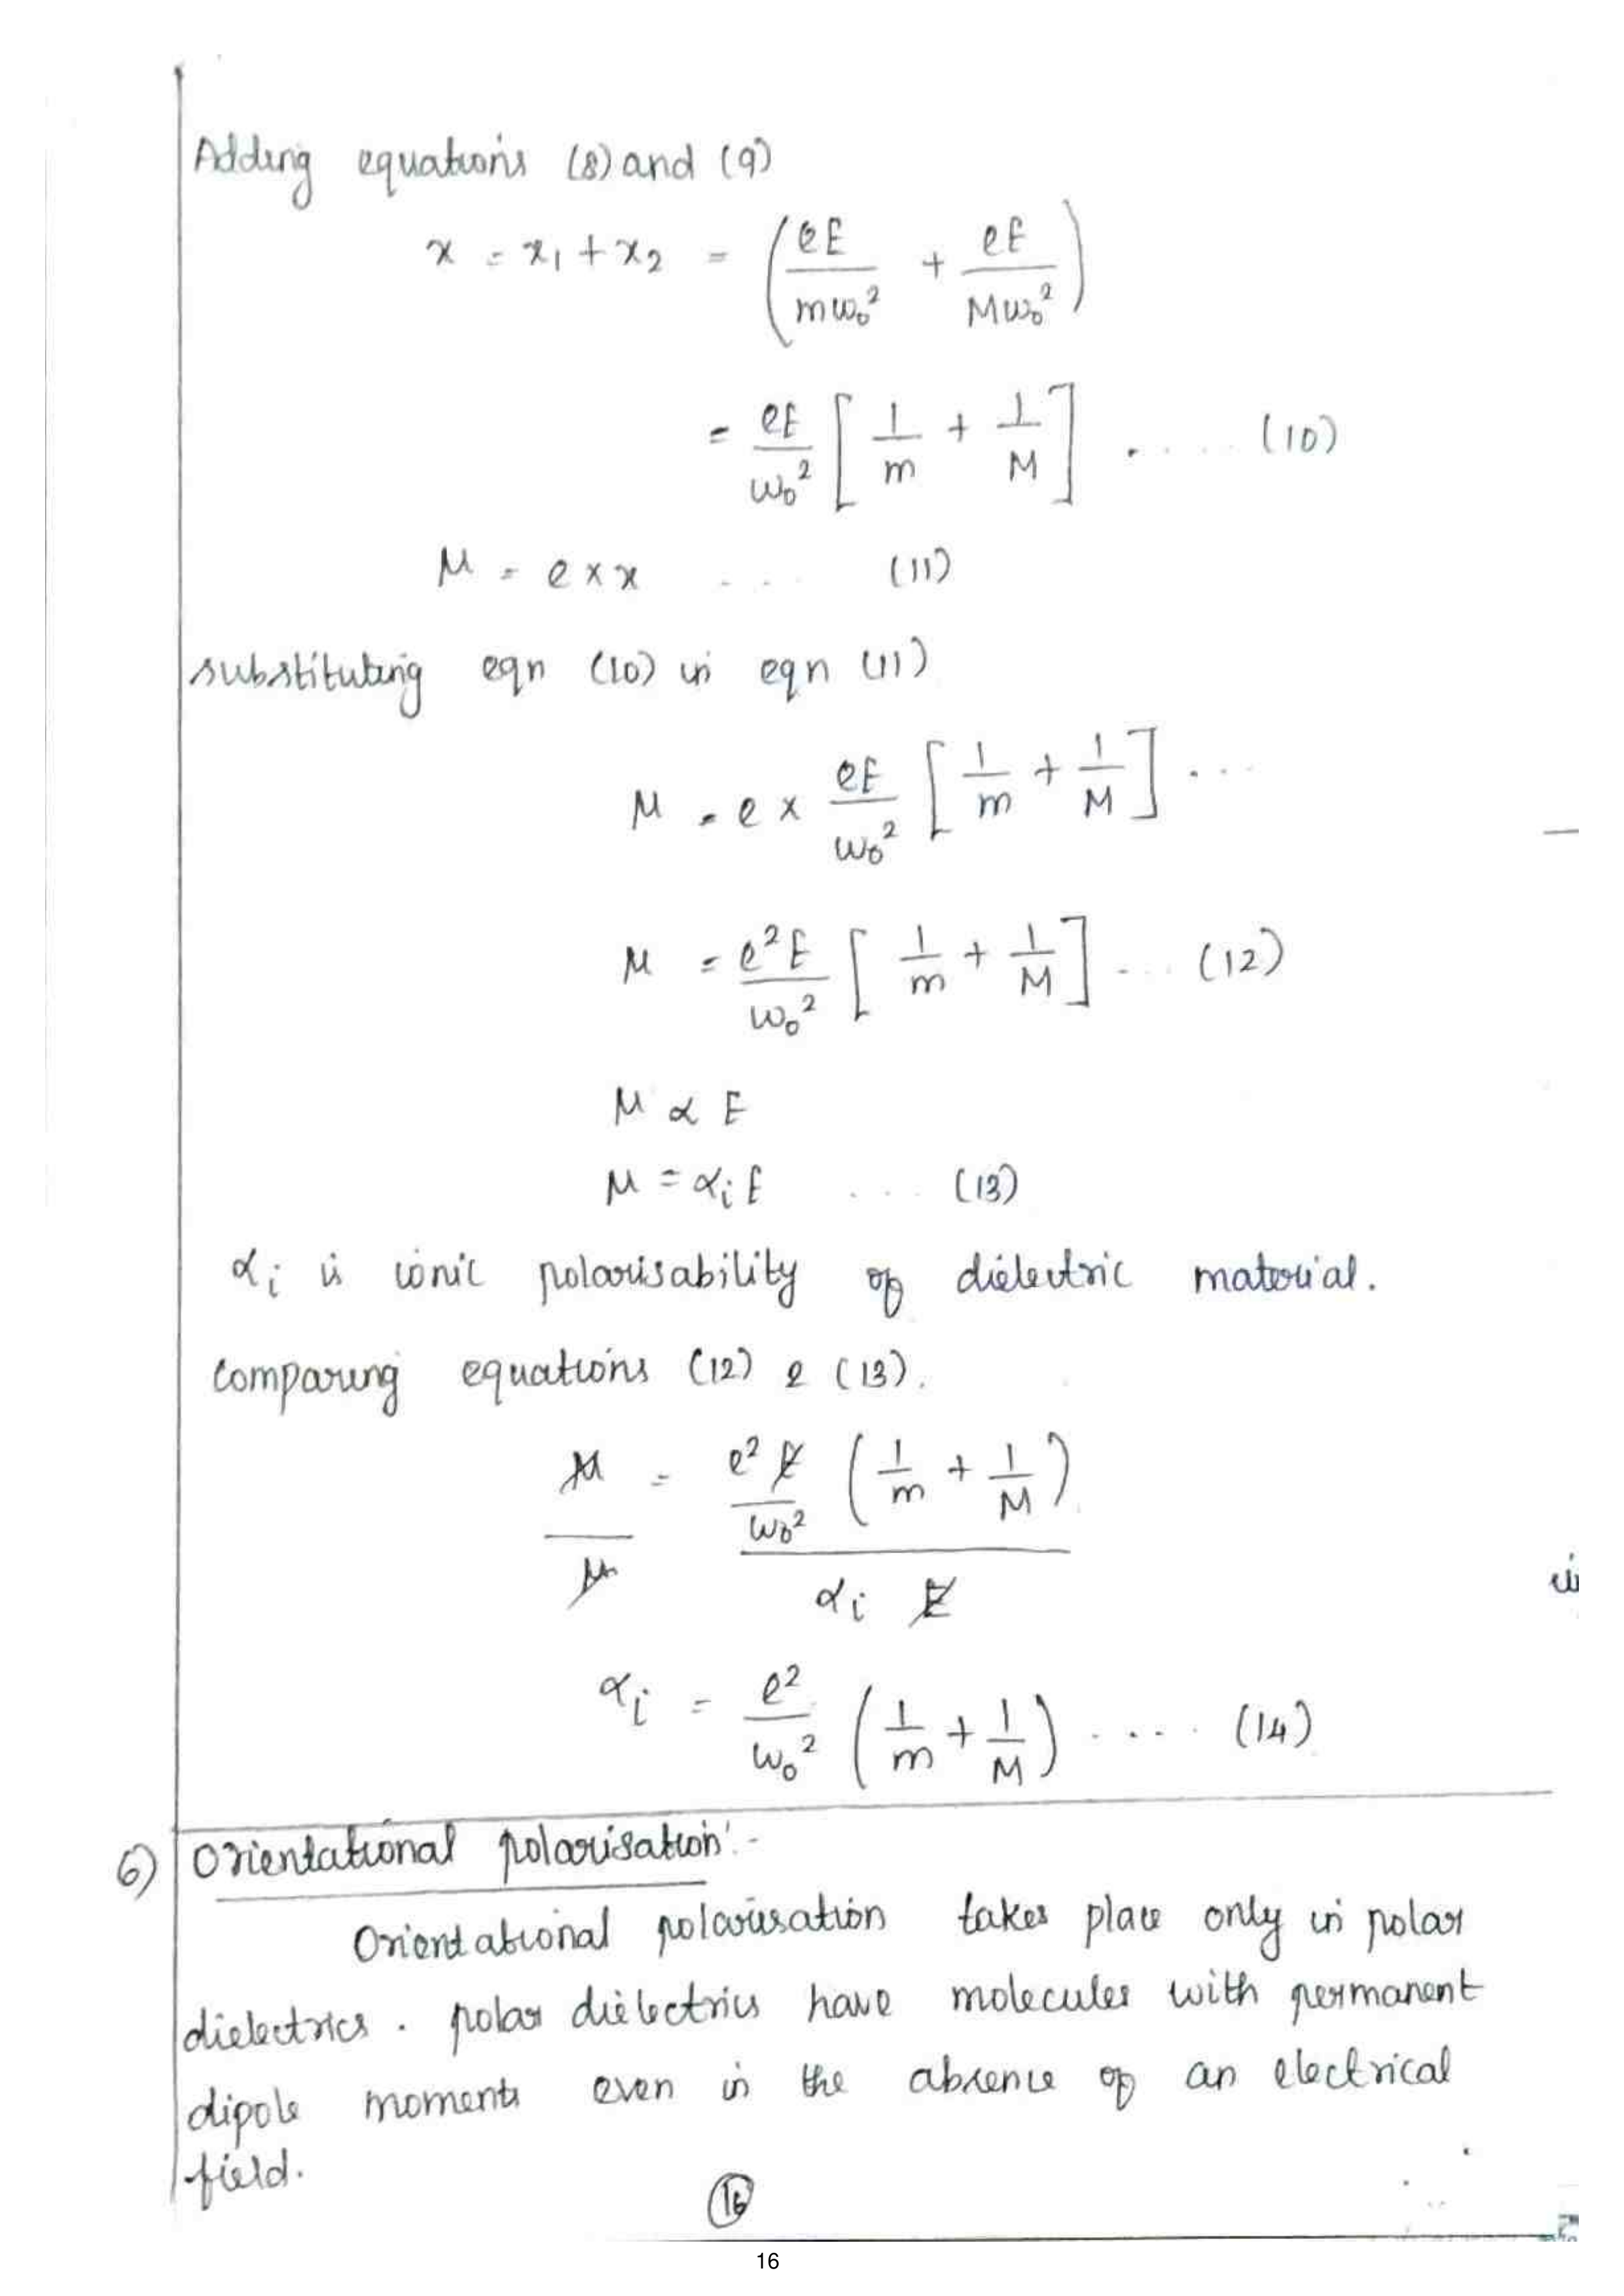 Adding equations (8) and (9)
x = x₁ + x₂ = (eE/mω₀² + eE/Mω₀²)
= eE/ω₀² [1/m + 1/M] ..... (10)
μ = e × x ... (11)
substituting eqn (10) in eqn (11)
μ = e × eE/ω₀² [1/m + 1/M] ...
μ = e²E/ω₀² [1/m + 1/M] ... (12)
μ ∝ E
μ = αᵢE .... (13)
αᵢ is ionic polarisability of dielectric material.
Comparing equations (12) & (13).
μ/μ = e²E/ω₀² (1/m + 1/M) / αᵢ E
αᵢ = e²/ω₀² (1/m + 1/M) ..... (14)
6) Orientational polarisation:-
Orientational polarisation takes place only in polar
dielectrics. polar dielectrics have molecules with permanent
dipole moments even in the absence of an electrical
field.
16
16